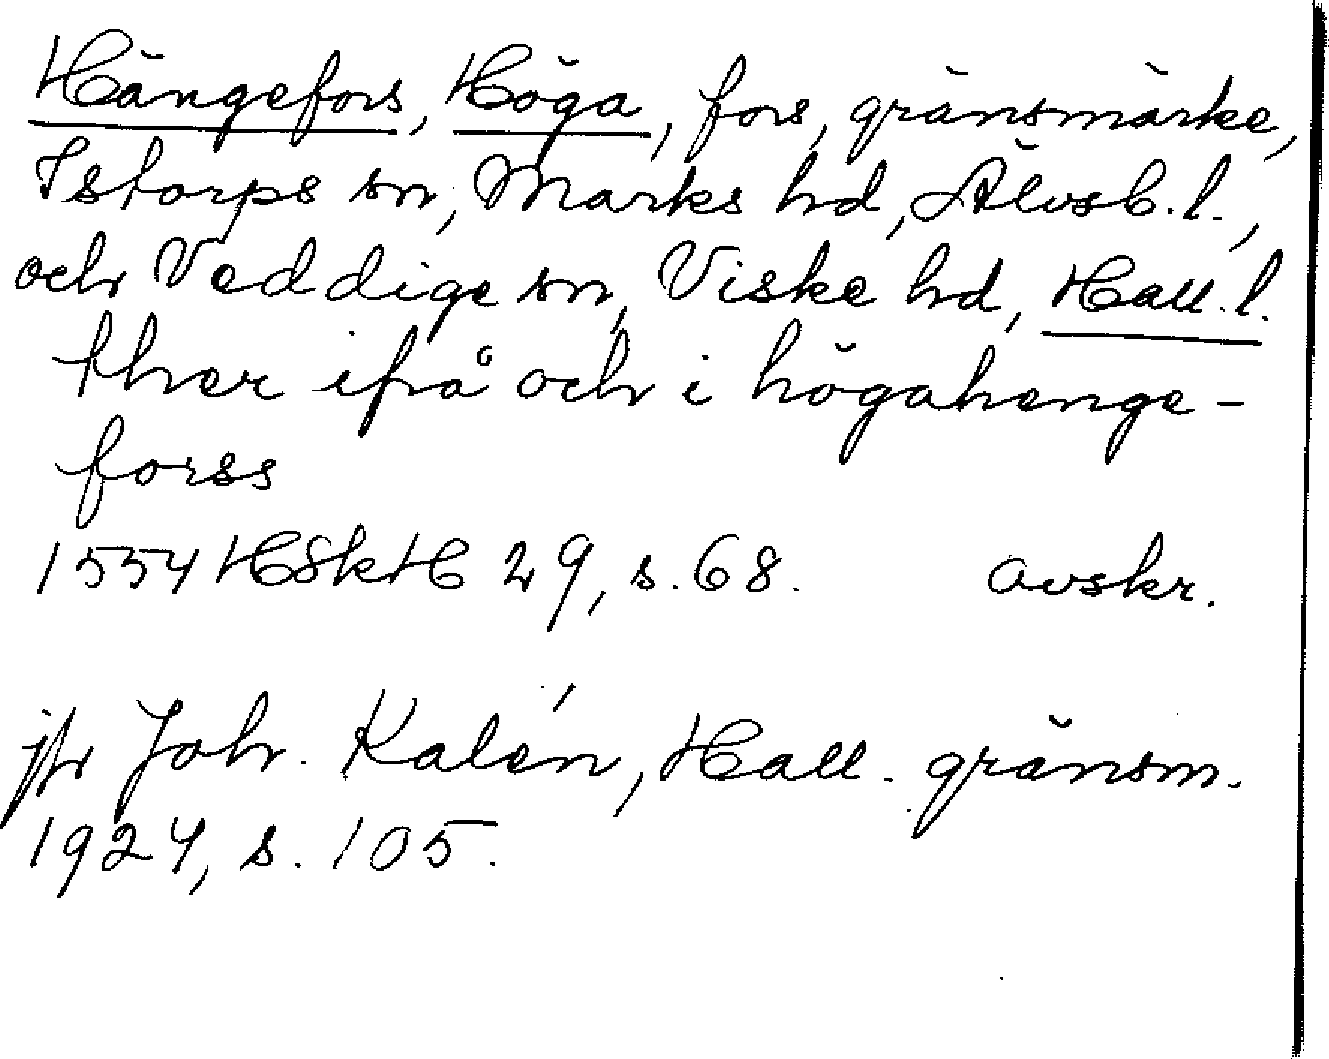 Hängefors, Höga, fors, gränsmärke,
Istorps sn, Marks hd, Älvsb. l.,
och Veddige sn, Viske hd, Hall. l.
ther ifrå och i högahenge-
forss
1554 HSkH 29, s. 68. avskr.
jfr Joh. Kalén, Hall. gränsm.
1924, s. 105.